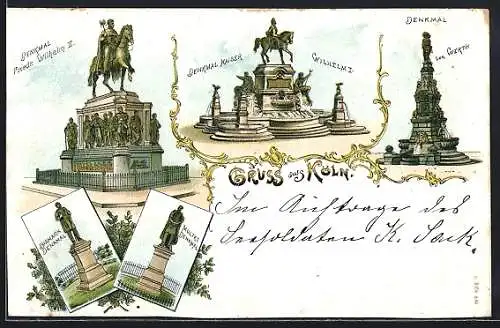 DENKMAL
FRIEDR. WILHELM II.
DENKMAL KAISER WILHELM I
DENKMAL
VON WERTH
GRUSS aus KÖLN.
BISMARCK
DENKMAL
MOLTKE
DENKMAL
Im Auftrage des
Seesoldaten K. Sack.